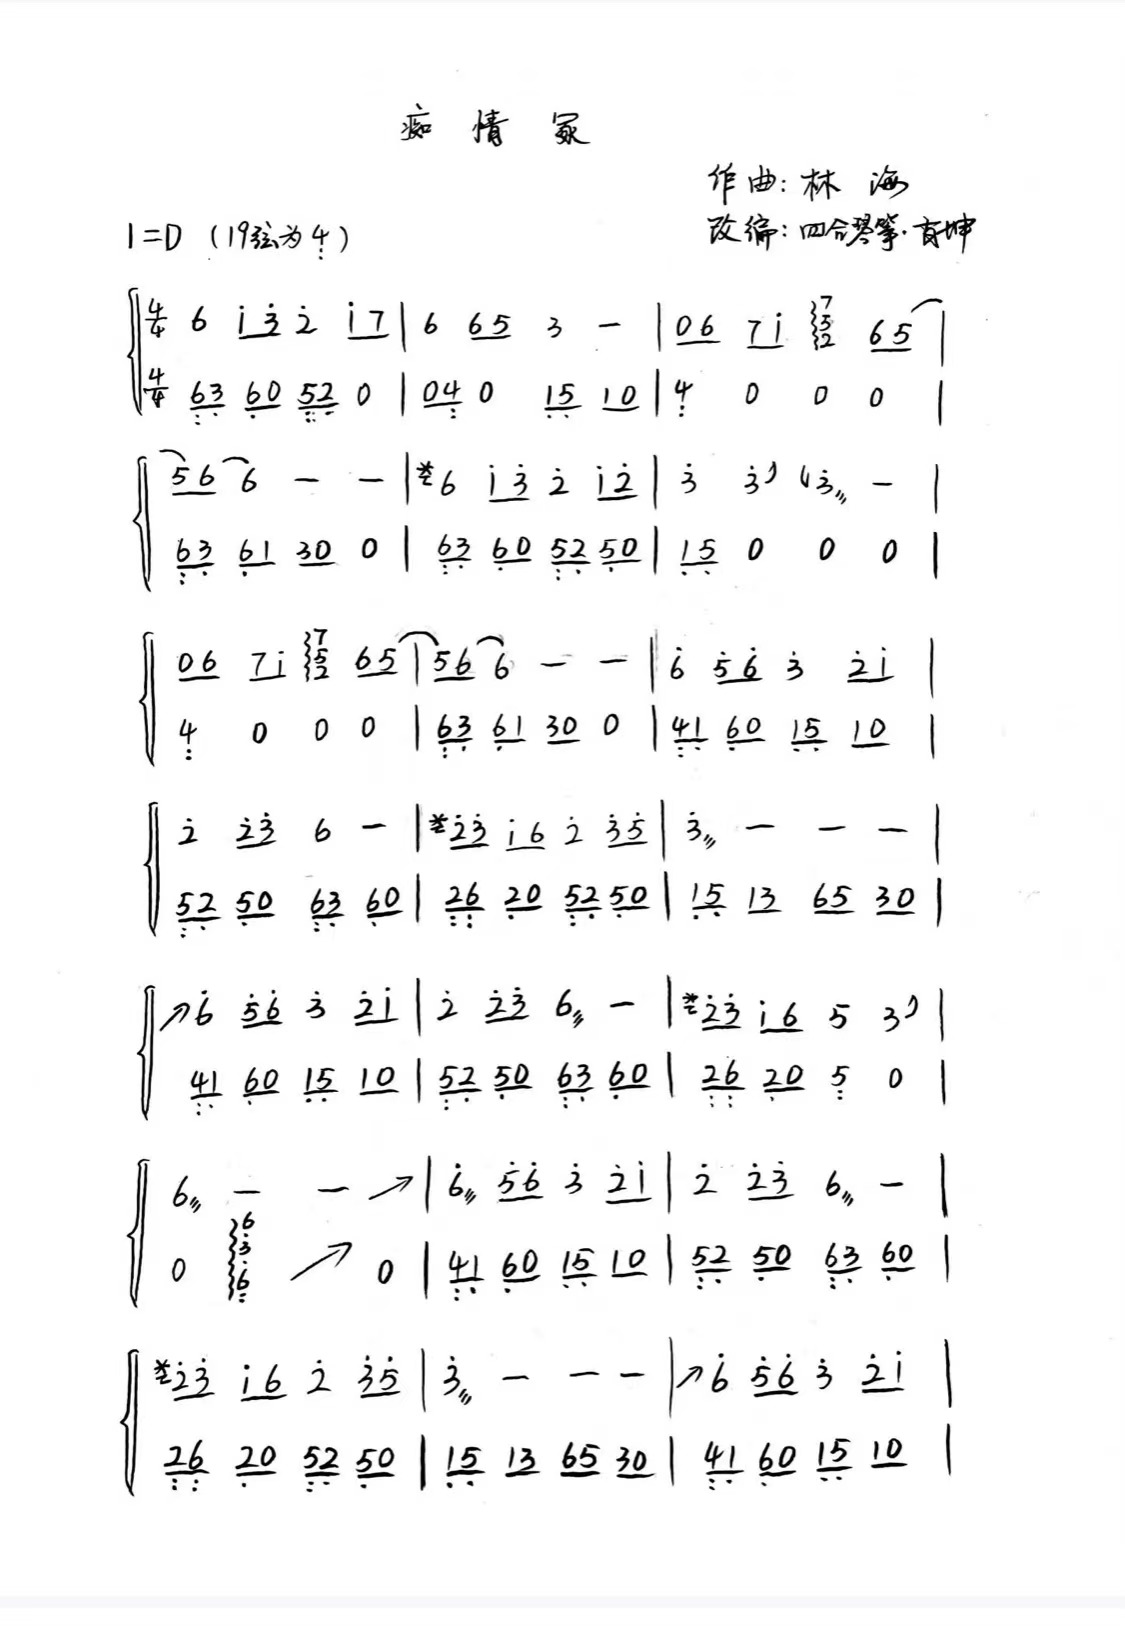 痴情冢
作曲: 林海
1=D (19弦为4̣)
改编: 四合琴筝·育坤
4/4 6 i̇3̇ 2̇ i̇7 | 6 65 3 — | 06 7i̇ 7 5 2 65 |
4/4 63 60 52 0 | 04 0 15 10 | 4 0 0 0 |
56 6 — — | *6 i̇3̇ 2̇ i̇2̇ | 3̇ 3̇ 3̇ — |
63 61 30 0 | 63 60 52 50 | 15 0 0 0 |
06 7i̇ 7 5 2 65 | 56 6 — — | 6̇ 5̇6̇ 3̇ 2̇i̇ |
4 0 0 0 | 63 61 30 0 | 41 60 15 10 |
2̇ 2̇3̇ 6 — | *2̇3̇ i̇6 2̇ 3̇5̇ | 3̇ — — — |
52 50 63 60 | 26 20 52 50 | 15 13 65 30 |
↗6̇ 5̇6̇ 3̇ 2̇i̇ | 2̇ 2̇3̇ 6 — | *2̇3̇ i̇6 5 3 |
41 60 15 10 | 52 50 63 60 | 26 20 5 0 |
6 — — ↗ | 6̇ 5̇6̇ 3̇ 2̇i̇ | 2̇ 2̇3̇ 6 — |
0 6 3 6 ↗ 0 | 41 60 15 10 | 52 50 63 60 |
*2̇3̇ i̇6 2̇ 3̇5̇ | 3̇ — — — | ↗6̇ 5̇6̇ 3̇ 2̇i̇ |
26 20 52 50 | 15 13 65 30 | 41 60 15 10 |